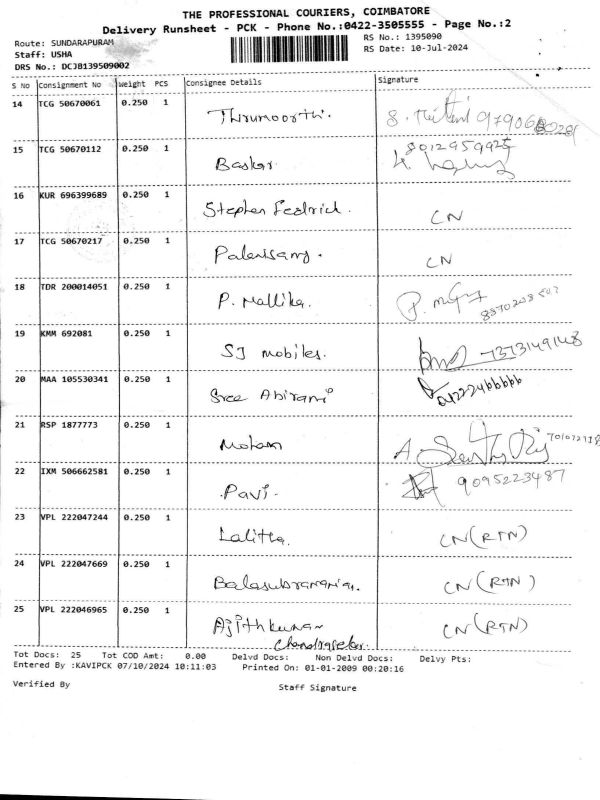 THE PROFESSIONAL COURIERS, COIMBATORE
Delivery Runsheet - PCK - Phone No.:0422-3505555 - Page No.:2
Route: SUNDARAPURAM RS No.: 1395090
Staff: USHA RS Date: 10-Jul-2024
DRS No.: DCJB139509002
S No Consignment No Weight PCS Consignee Details Signature
14 TCG 50670061 0.250 1 Thirumoorthi.
15 TCG 50670112 0.250 1 Baskar 8012959925
16 KUR 696399689 0.250 1 Stephen Fedrich. CN
17 TCG 50670217 0.250 1 Palanisamy. CN
18 TDR 200014051 0.250 1 P. Mallika. 8870208507
19 KMM 692081 0.250 1 SJ mobiles. 7373149148
20 MAA 105530341 0.250 1 Sree Abirami 04222466666
21 RSP 1877773 0.250 1 Mohan
22 IXM 506662581 0.250 1 Pavi. 9095223487
23 VPL 222047244 0.250 1 Lalitha. CN (RTN)
24 VPL 222047669 0.250 1 Balasubramanian. CN (RTN)
25 VPL 222046965 0.250 1 Ajithkumar CN (RTN)
Chandrasekar.
Tot Docs: 25 Tot COD Amt: 0.00 Delvd Docs: Non Delvd Docs: Delvy Pts:
Entered By :KAVIPCK 07/10/2024 10:11:03 Printed On: 01-01-2009 00:20:16
Verified By Staff Signature